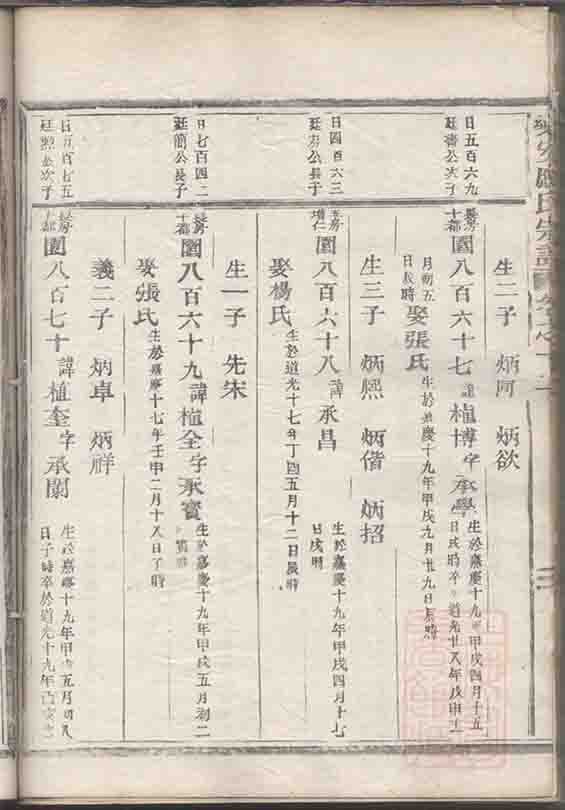 應氏宗譜
生二子 炳阿 炳欲
日五百六九
廷 公次子
長房
十都
園八百六十七 諱植博字承學
生於嘉慶十九年甲戌四月十五
日戌時卒 道光廿八年戊申十
月初五
日 時
娶張氏
生於嘉慶十九年甲戌九月廿九日辰時
生三子 炳熙 炳偕 炳招
日四百六三
廷 公長子
園八百六十八 諱 承昌
生於嘉慶十九年甲戌四月十七
日戌時
娶楊氏
生於道光十七年丁酉五月十二日辰時
生一子 先宋
日七百四二
廷簡公長子
長房
十都
園八百六十九 諱植全字承賓
生於嘉慶十九年甲戌五月初二
娶張氏
生於嘉慶十七年壬申二月十八日子時
義二子 炳卓 炳祥
日五百七五
廷熙公次子
長房
十都
園八百七十 諱植奎字承關
生於嘉慶十九年甲戌五月初八
日子時卒於道光十九年己亥